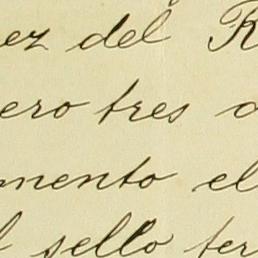 ez del R
ero tres
mento el
l sello ter